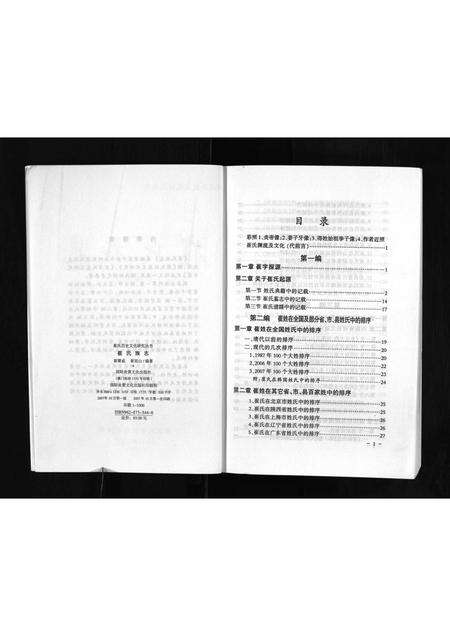 崔氏历史文化研究丛书
崔氏族志
国际炎黄文化出版社
目录
彩照:1.炎帝像;2.姜子牙像;3.得姓始祖季子像;4.作者近照
崔氏渊流及文化(代前言)……1
第一编
第一章 崔字探源……1
第二章 关于崔氏起源
第一节 姓氏典籍中的记载……2
第二节 崔氏墓志中的记载……14
第三节 崔氏谱牒中的记载……17
第二编 崔姓在全国及部分省、市、县姓氏中的排序
第一章 崔姓在全国姓氏中的排序
一.清代以前的排序……19
二.现代的几次排序……20
1.1987年100个大姓排序……21
2.2006年100个大姓排序……22
3.2007年100个大姓排序……22
附:崔氏在韩国姓氏中的排序……24
第二章 崔姓在其它省、市、县百家姓中的排序
1.崔氏在北京市姓氏中的排序……25
2.崔氏在陕西省姓氏中的排序……25
3.崔氏在上海市姓氏中的排序……26
4.崔氏在辽宁省姓氏中的排序……26
5.崔氏在广东省姓氏中的排序……27
- 1 -